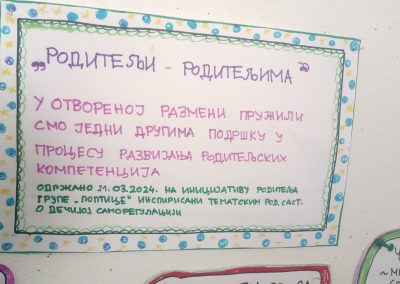 „РОДИТЕЉИ - РОДИТЕЉИМА"
У ОТВОРЕНОЈ РАЗМЕНИ ПРУЖИЛИ
СМО ЈЕДНИ ДРУГИМА ПОДРШКУ У
ПРОЦЕСУ РАЗВИЈАЊА РОДИТЕЉСКИХ
КОМПЕТЕНЦИЈА
ОДРЖАНО 21.03.2024. НА ИНИЦИЈАТИВУ РОДИТЕЉА
ГРУПЕ „ЛОПТИЦЕ" ИНСПИРИСАНИ ТЕМАТСКИМ РОД. САСТ.
О ДЕЧИЈОЈ САМОРЕГУЛАЦИЈИ